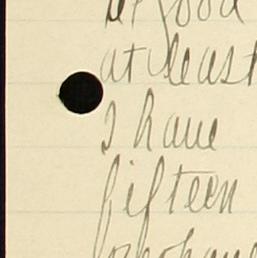 good
at least
I have
fifteen